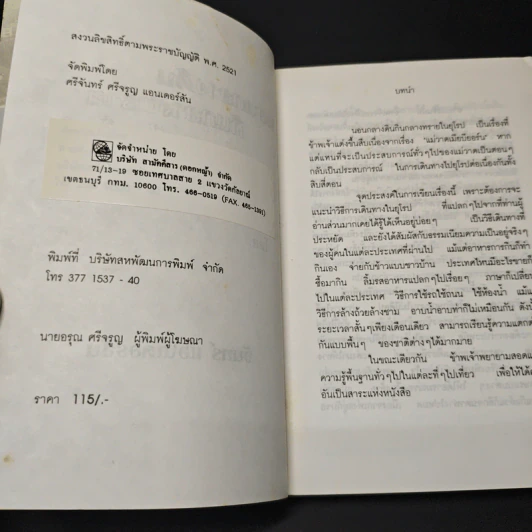 สงวนลิขสิทธิ์ตามพระราชบัญญัติ พ.ศ. 2521
จัดพิมพ์โดย
ศรีจันทร์ ศรีจรูญ แอนเดอร์สัน
จัดจำหน่าย โดย
บริษัท สามัคคีสาร (ดอกหญ้า) จำกัด
71/13-19 ซอยเทศบาลสาย 2 แขวงวัดกัลยาณ์
เขตธนบุรี กทม. 10600 โทร. 466-0519 (FAX. 466-1351)
พิมพ์ที่ บริษัทสหพัฒนการพิมพ์ จำกัด
โทร 377 1537 - 40
นายอรุณ ศรีจรูญ ผู้พิมพ์ผู้โฆษณา
ราคา 115/.-
บทนำ
นอนกลางดินกินกลางทรายในยุโรป เป็นเรื่องที่
ข้าพเจ้าแต่งขึ้นสืบเนื่องจากเรื่อง "แม่วาดเมียบียอร์น" หาก
แต่แทนที่จะเป็นประสบการณ์ทั่วๆไปของแม่วาดเป็นตอนๆ
กลับเป็นประสบการณ์ ในการเดินทางไปยุโรปต่อเนื่องกันทั้ง
สิบสี่ตอน
จุดประสงค์ในการเขียนเรื่องนี้ เพราะต้องการจะ
แนะนำวิธีการเดินทางในยุโรป ที่แปลกๆไปจากที่ท่านผู้
อ่านส่วนมากเคยได้รู้ได้เห็นอยู่บ่อยๆ เป็นวิธีเดินทางที่
ประหยัด และยังได้สัมผัสกับธรรมเนียมความเป็นอยู่จริงๆ
ของผู้คนในแต่ละประเทศที่ผ่านไป แม้แต่อาหารการกินก็ทำ
กินเอง จ่ายกับข้าวแบบชาวบ้าน ประเทศไหนมีอะไรขายก็
ซื้อมากิน ลิ้มรสอาหารแปลกๆไปเรื่อยๆ ภาษาก็เปลี่ยน
ไปในแต่ละประเทศ วิธีการใช้รถใช้ถนน ใช้ห้องน้ำ แม้แ
วิธีการล้างถ้วยล้างชาม อาบน้ำอาบท่าก็ไม่เหมือนกัน ดังนั้
ระยะเวลาสั้นๆเพียงเดือนเดียว สามารถเรียนรู้ความแตกต
กันแบบพื้นๆ ของชาติต่างๆได้มากมาย
ในขณะเดียวกัน ข้าพเจ้าพยายามสอดแ
ความรู้พื้นฐานทั่วๆไปในแต่ละที่ๆไปเที่ยว เพื่อให้ได้ค
อันเป็นสาระแห่งหนังสือ